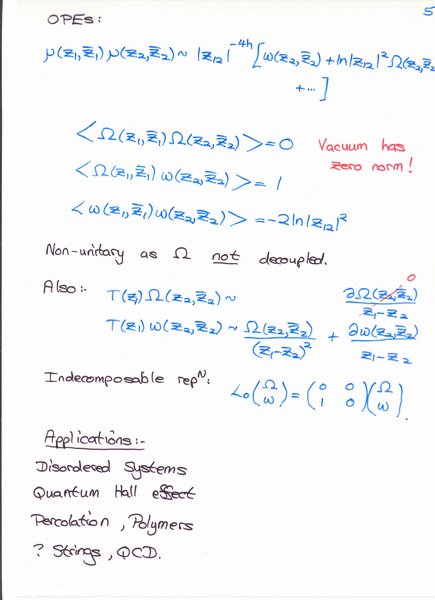 5
OPEs:
μ(z₁,z̄₁) μ(z₂,z̄₂) ~ |z₁₂|⁻⁴ʰ [ω(z₂,z̄₂) + ln|z₁₂|² Ω(z₂,z̄₂)
+ ⋯ ]
<Ω(z₁,z̄₁) Ω(z₂,z̄₂)> = 0 Vacuum has
<Ω(z₁,z̄₁) ω(z₂,z̄₂)> = 1 zero norm!
<ω(z₁,z̄₁) ω(z₂,z̄₂)> = -2 ln|z₁₂|²
Non-unitary as Ω not decoupled.
Also:- T(z₁) Ω(z₂,z̄₂) ~ ∂Ω(z₂,z̄₂)/(z₁-z₂) 0
T(z₁) ω(z₂,z̄₂) ~ Ω(z₂,z̄₂)/(z₁-z₂)² + ∂ω(z₂,z̄₂)/(z₁-z₂)
Indecomposable repᴺ: L₀ (Ω ω) = (0 0 1 0) (Ω ω).
Applications:-
Disordered Systems
Quantum Hall effect
Percolation, Polymers
? Strings, QCD.